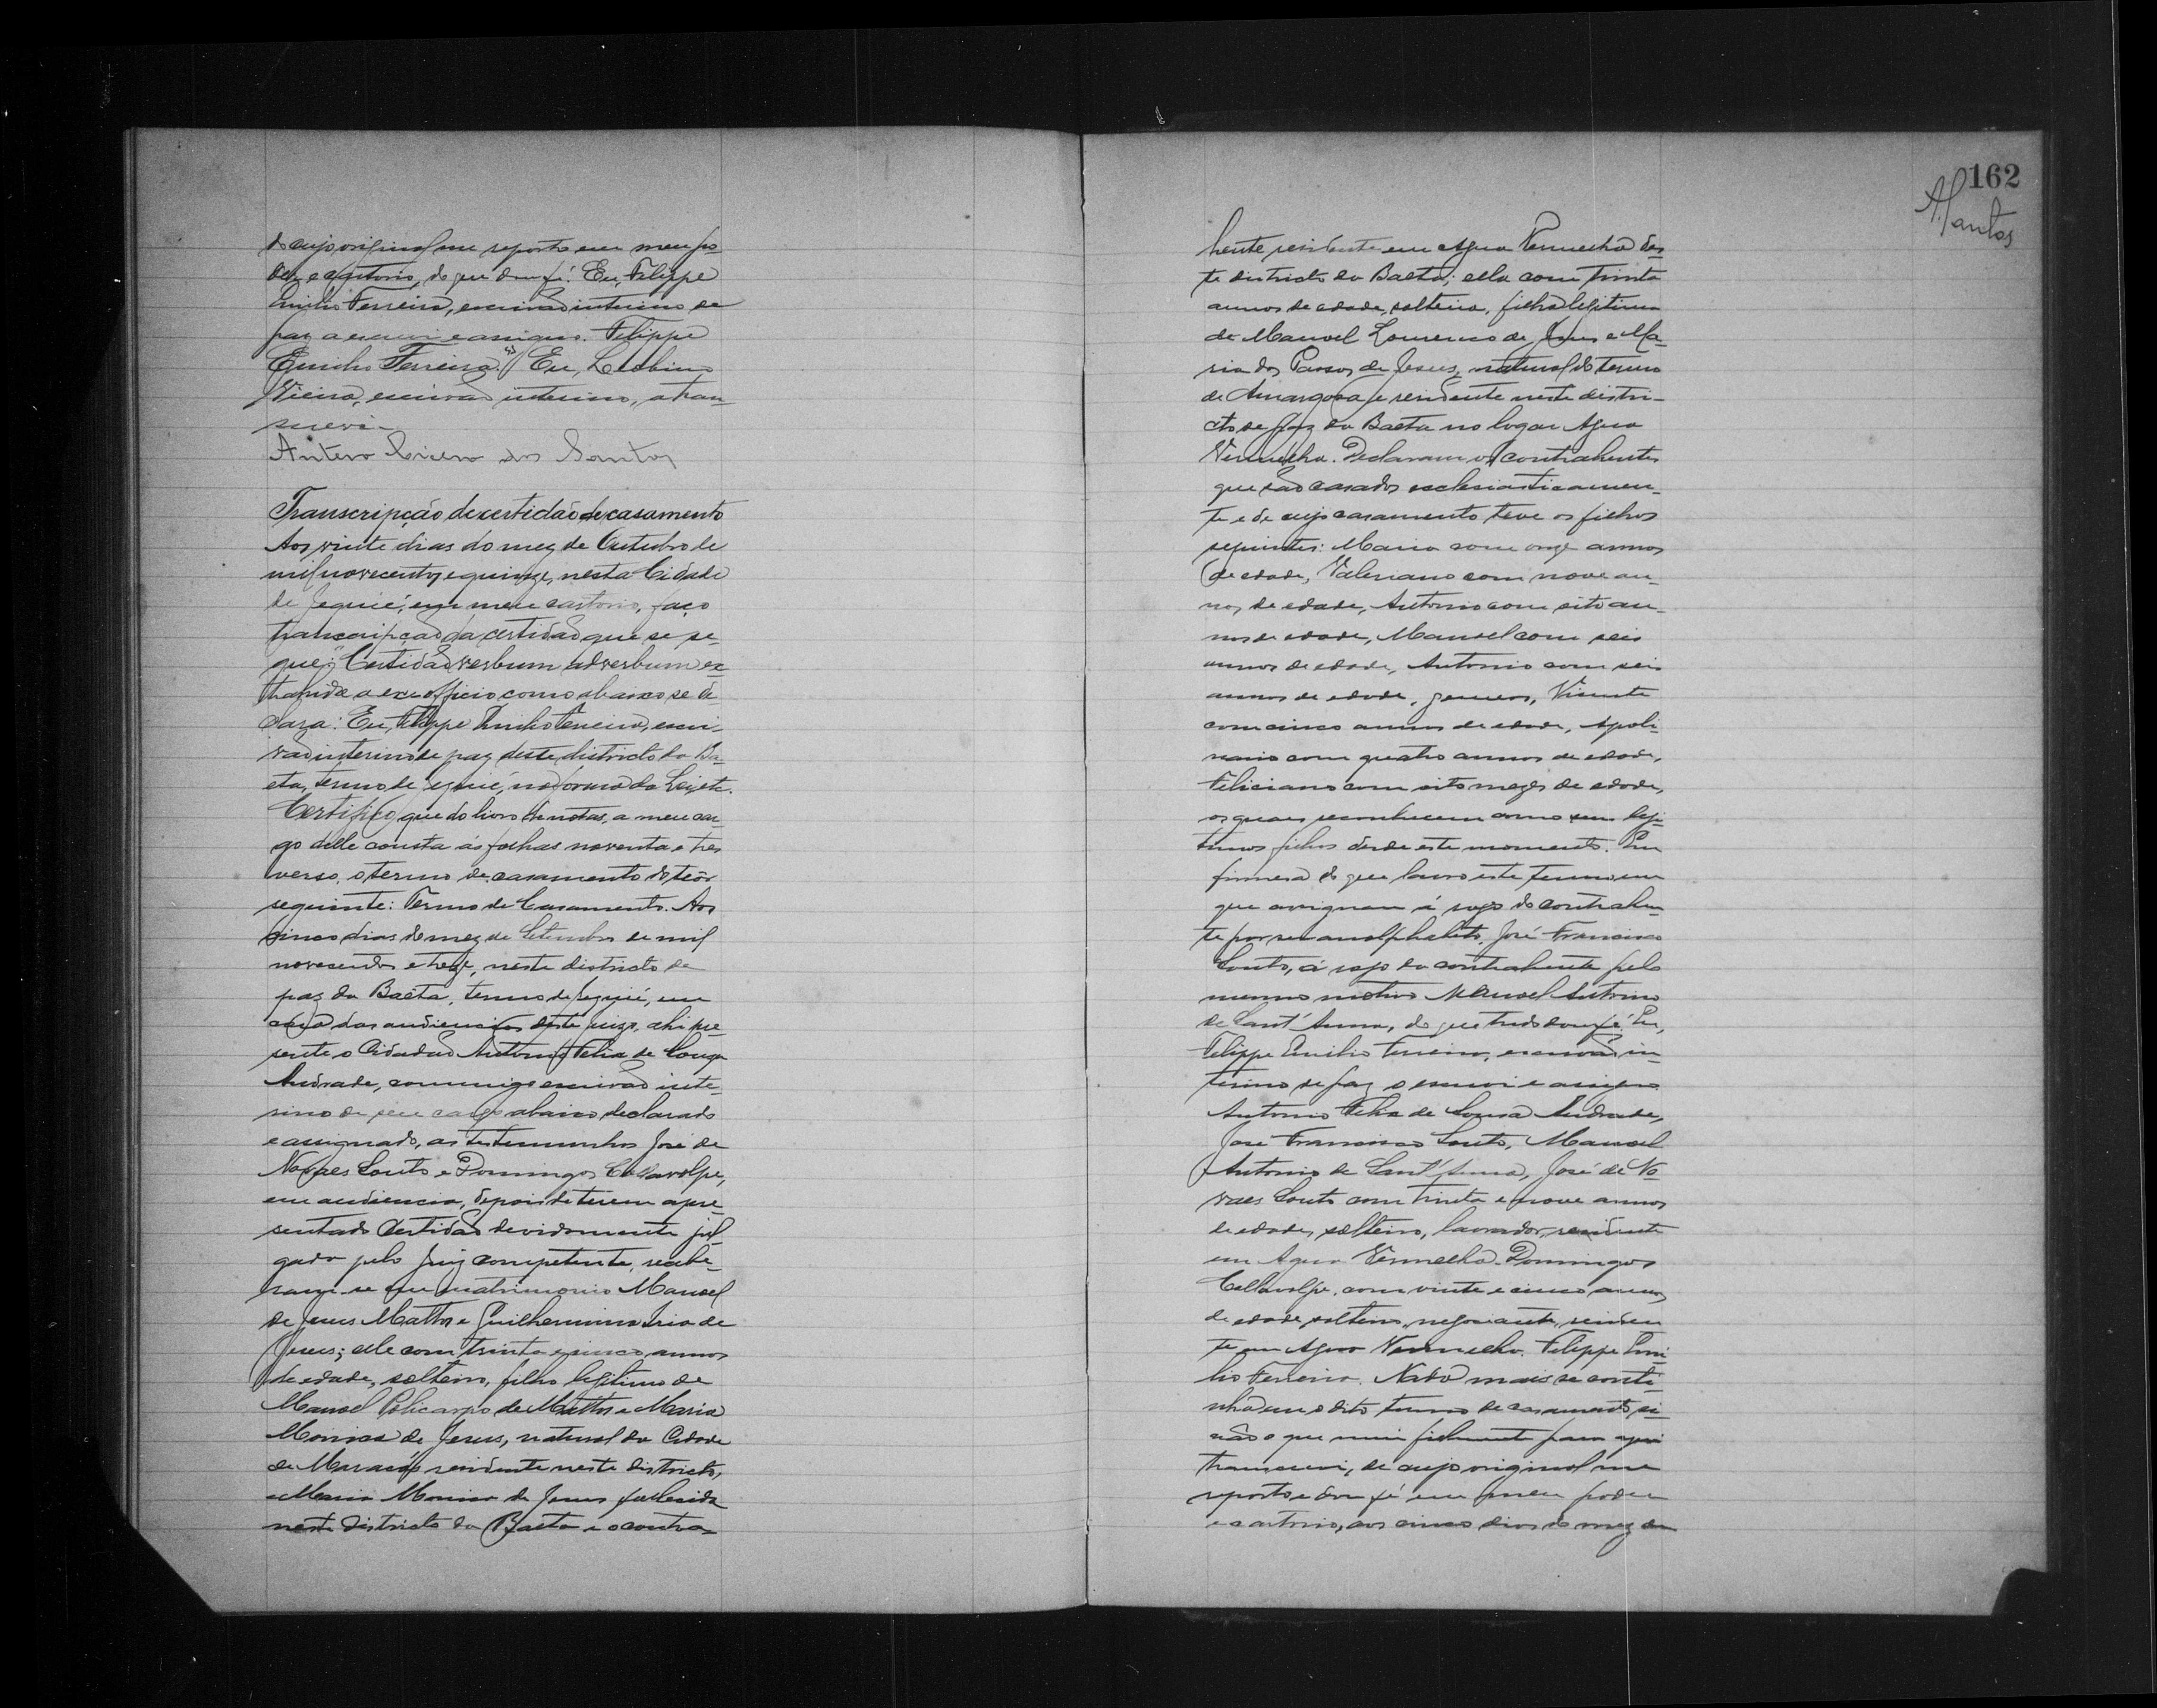 do cujo original me reporto em meu po-
der e cartorio, do que dou fé. Eu, Filippe
Emilio Ferreira, escrivão interino de
paz a escrevi e assigno. Filippe
Emilio Ferreira." Eu, Leobino
Vieira, escrivão interino, a tran-
screvi-
Antero Cicero dos Santos
Transcripção de certidão de casamento
Aos vinte dias do mez de Outubro de
mil novecentos e quinze, nesta Cidade
de Jequié, em meu cartorio, faço
transcripção da certidão que se se-
gue: "Certidão verbum adverbum ex-
trahida a ex-officio, como abaixo se de
clara: Eu, Filippe Emilio Ferreira, escri-
vão interino de paz deste districto da Ba-
eta, termo de Jequié, na forma da Lei, etc.
Certifico que do livro de notas, a meu car-
go delle consta ás folhas noventa e tres
verso, o termo de casamento do teôr
seguinte: Termo de Casamento. Aos
cinco dias do mez de Setembro de mil
novecentos e treze, neste districto de
paz da Baeta, termo de Jequié, em
casa das audiencias deste juizo, ahi pre-
sente o Cidadão Antonio Felix de Souza
Andrade, commigo escrivão inte-
rino de seu cargo abaixo declarado
e assignado, as testemunhas José de
Novaes Souto e Domingos Collavolpe,
em audiencia, depois de terem apre-
sentado Certidão devidamente jul-
gada pelo Juiz competente, recebe-
ram-se em matrimonio Manoel
de Jesus Mattos e Guilhermina Iria de
Jesus; elle com trinta e cinco annos
de edade, solteiro, filho legitimo de
Manoel Policarpo de Mattos e Maria
Monica de Jesus, natural da Cidade
de Maracás residente neste districto,
e Maria Monica de Jesus fallecida
neste districto da Baeta e o contra-
162
ASantos
hente residente em Agua Vermelha des-
te districto da Baeta; ella com trinta
annos de edade, solteira, filha legitima
de Manoel Lourenco de Jesus e Ma-
ria dos Passos de Jesus, natural do termo
de Amargosa e residente neste distri-
cto de paz da Baeta no logar Agua
Vermelha. Declaram os contrahentes
que são casados ecclesiasticamen-
te e de cujo casamento teve os filhos
seguintes: Maria com onze annos
de edade, Valeriano com nove an-
nos de edade, Antonio com oito an-
nos de edade, Manoel com seis
annos de edade, Antonio com seis
annos de edade, gemeos, Vicente
com cinco annos de edade, Apoli-
nario com quatro annos de edade,
Feliciano com oito mezes de edade,
os quaes reconhecem como seus legi-
timos filhos desde este momento. Em
firmesa do que lavro este termo em
que assignam á rogo do contrahen-
te por ser analphabeto, José Francisco
Souto, á rogo da contrahente pelo
mesmo motivo Manoel Antonio
de Sant'Anna, do que tudo dou fé. Eu,
Filippe Emilio Ferreira, escrivão in-
terino de paz o escrevi e assigno
Antonio Felix de Sousa Andrade,
José Francisco Souto, Manoel
Antonio de Sant'Anna, José de No-
vaes Souto com trinta e nove annos
de edade, solteiro, lavrador, residente
em Agua Vermelha. Domingos
Collavolpe, com vinte e cinco annos
de edade, solteiro, negociante, residen
te em Agua Vermelha. Filippe Emi-
lio Ferreira. Nada mais se conti-
nha em o dito termo de casamento si-
não o que mui fielmente para aqui
transcrevi, de cujo original me
reporto e dou fé em meu poder
e cartorio, aos cinco dias do mez de